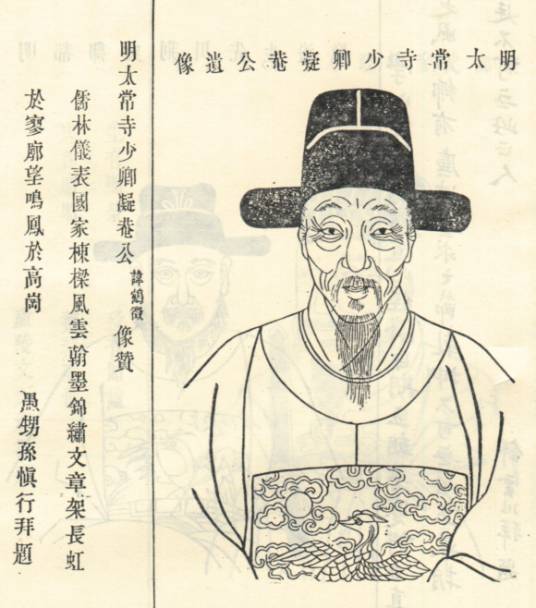 明太常寺少卿凝菴公遺像
明太常寺少卿凝菴公諱鶴徵像贊
儒林儀表國家棟樑風雲翰墨錦繡文章架長虹
於寥廓望鳴鳳於高崗
愚甥孫慎行拜題